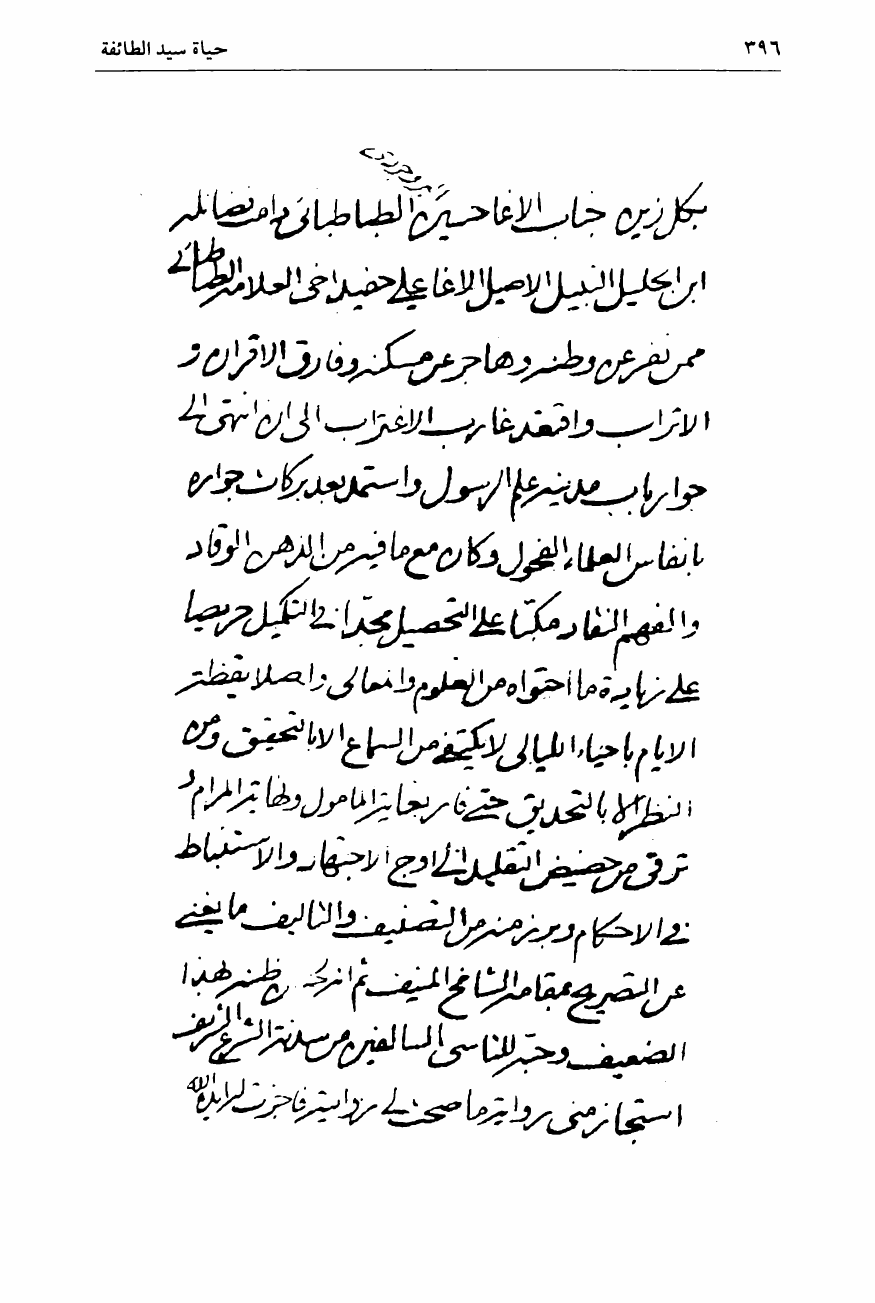 ٣٩٦
حياة سيد الطائفة
بروجردى
بكل زين جناب الاغا حسين الطباطبائى دامت فضائله
ابن الجليل النبيل الاصيل الاغا على حفيد اخى العلامة الطباطبائى
ممن نفر عن وطنه وهاجر عن مسكنه وفارق الاقران و
الاتراب واقتعد غارب الاغتراب الى ان انتهى الى
جوار باب مدينة علم الرسول واستمد بعد بركات جواره
بانفاس العلماء الفحول وكان مع ما فيه من الذهن الوقاد
والفهم النقاد مكبا على التحصيل مجدا فى التكميل حريصا
على زيادة ما احتواه من العلوم والمعالى واصلا يقظة
الايام باحياء الليالى لا يكتفى من السماع الا بالتحقيق ومن
النظر الا بالتحديق حتى فاز بغاية المامول ونهاية المرام و
ترقى من حضيض التقليد الى اوج الاجتهاد والاستنباط
فى الاحكام وبرز منه من التصنيف والتاليف ما يغنى
عن التصريح بمقامه الشامخ المنيف ثم انه ظنه بهذا
الضعيف وحبه للتاسى بالسالفين من سدنة الشرع الشريف
استجاز منى رواية ما صحت لى روايته فاجزت له ايده الله